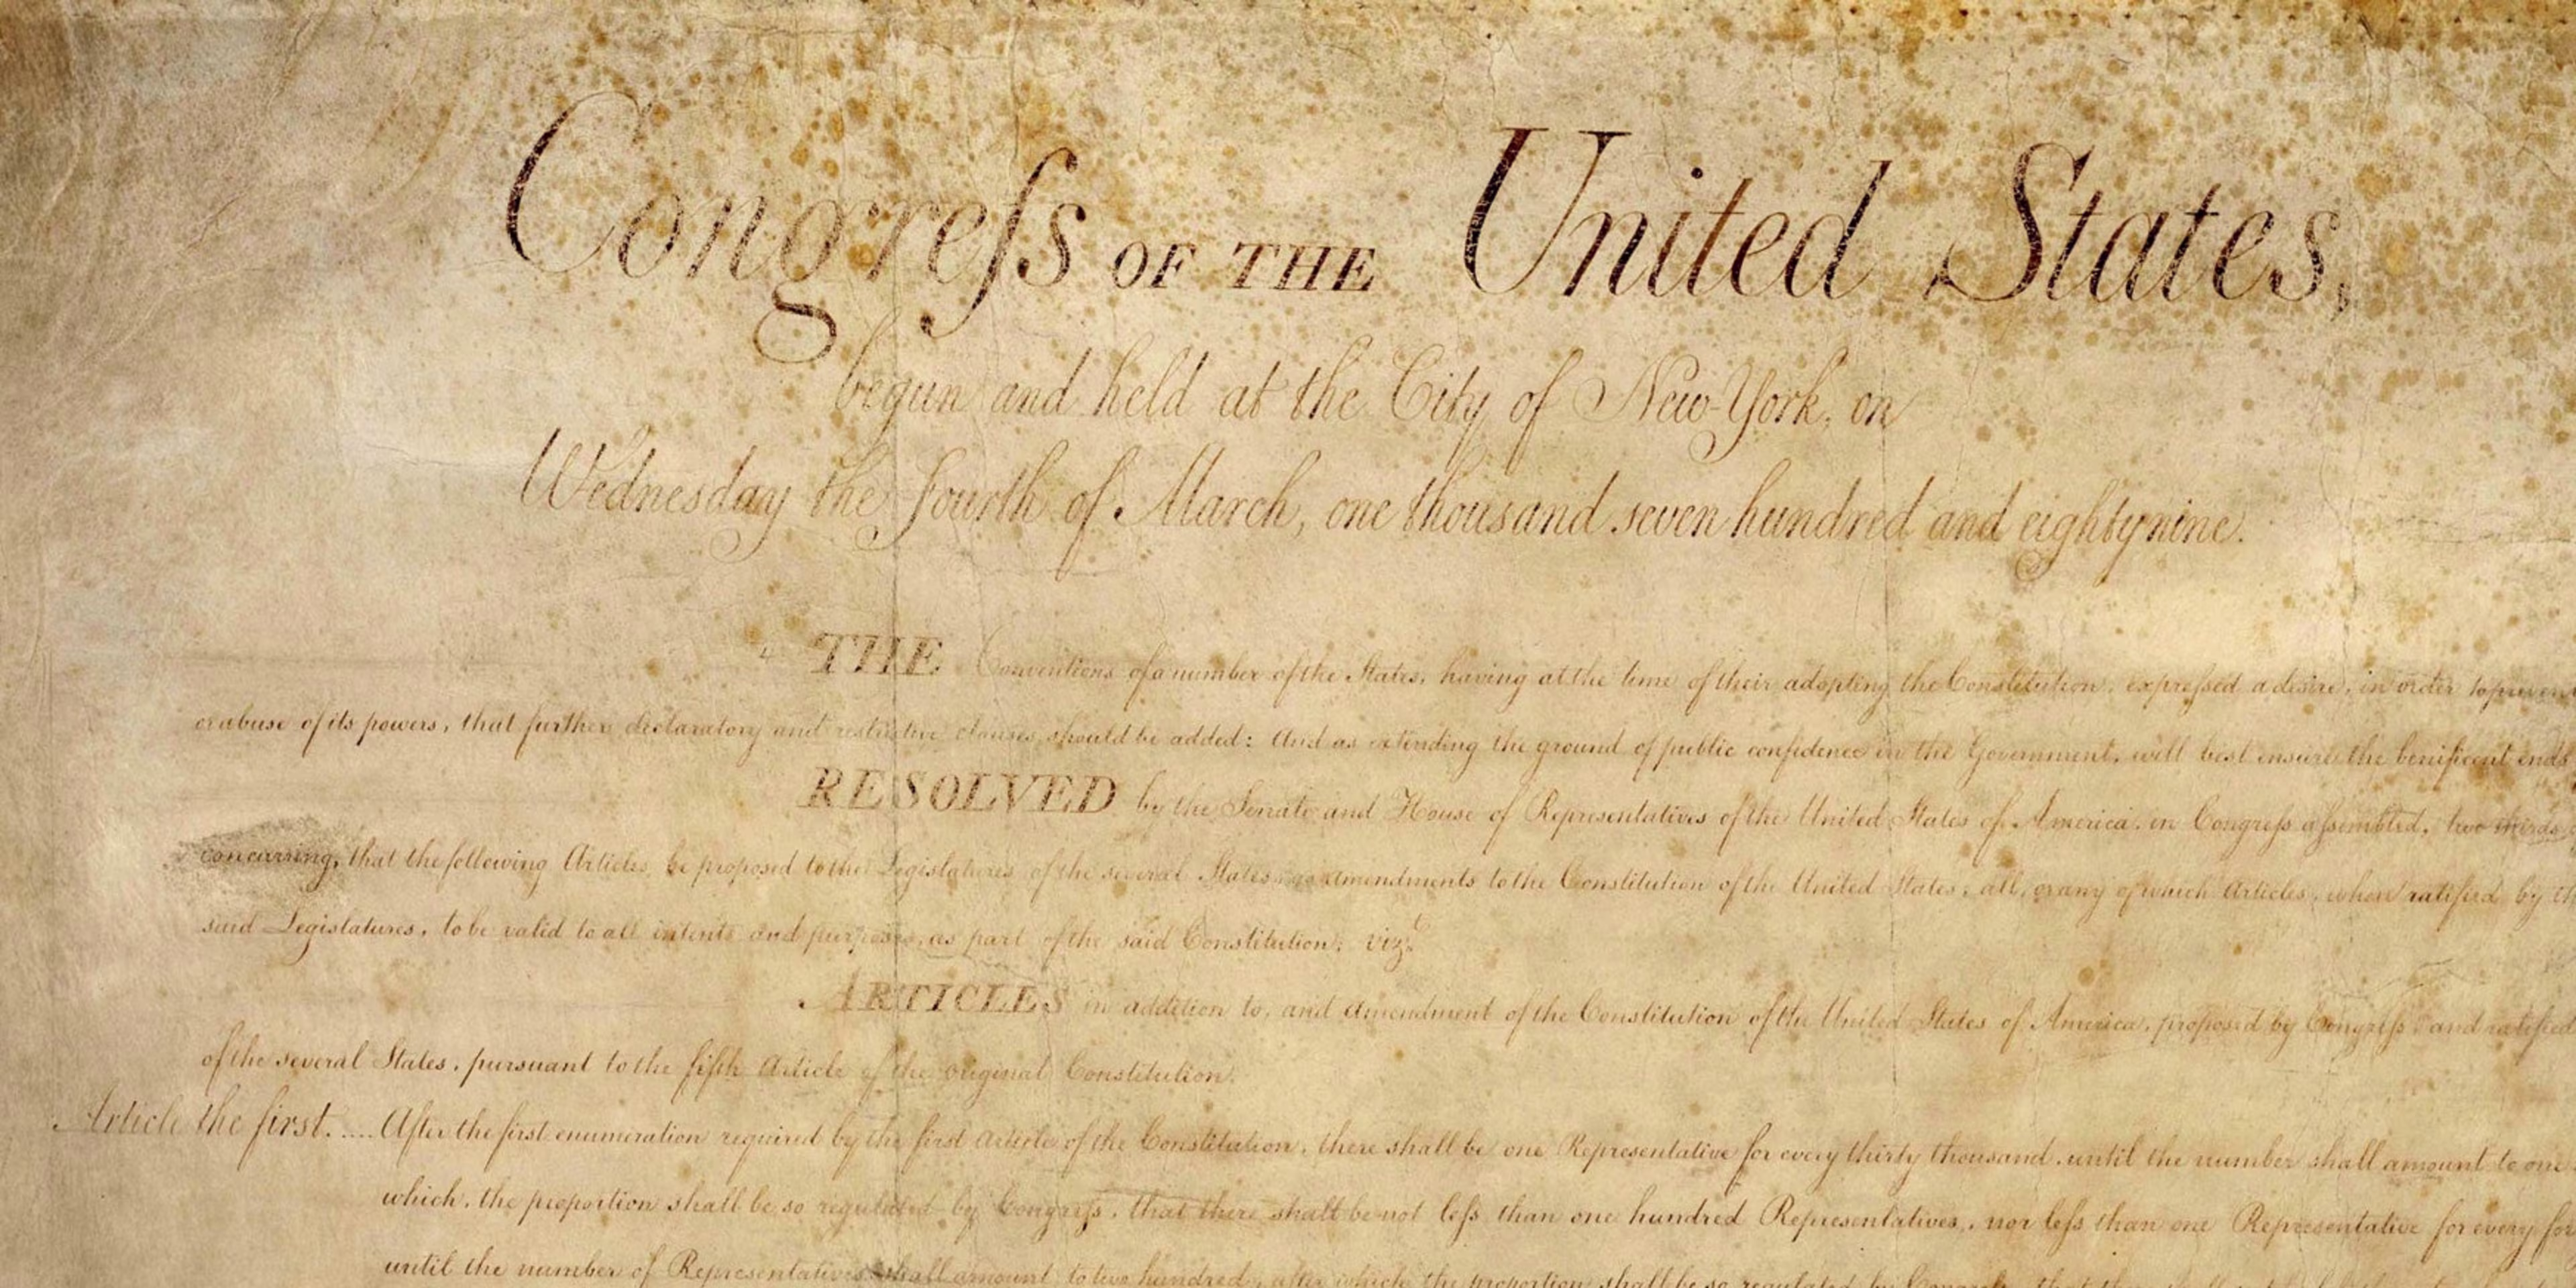 Congreſs OF THE United States,
begun and held at the City of New-York, on
Wednesday the fourth of March, one thousand seven hundred and eighty nine.
THE Conventions of a number of the States, having at the time of their adopting the Constitution, expreſsed a desire, in order to prevent
or abuse of its powers, that further declaratory and restrictive clauses should be added: And as extending the ground of public confidence in the Government, will best ensure the benificent ends
RESOLVED by the Senate and House of Representatives of the United States of America, in Congreſs aſsembled, two thirds
concurring, that the following Articles be proposed to the Legislatures of the several States, as amendments to the Constitution of the United States, all, or any of which Articles, when ratified by
said Legislatures, to be valid to all intents and purposes, as part of the said Constitution; vizt
ARTICLES in addition to, and amendment of the Constitution of the United States of America, proposed by Congreſs and ratified
of the several States, pursuant to the fifth Article of the original Constitution.
Article the first..... After the first enumeration required by the first Article of the Constitution, there shall be one Representative for every thirty thousand, until the number shall amount to one
which, the proportion shall be so regulated by Congreſs, that there shall be not leſs than one hundred Representatives, nor leſs than one Representative for every
until the number of Representatives shall amount to two hundred, after which the proportion shall be so regulated by Congreſs, that